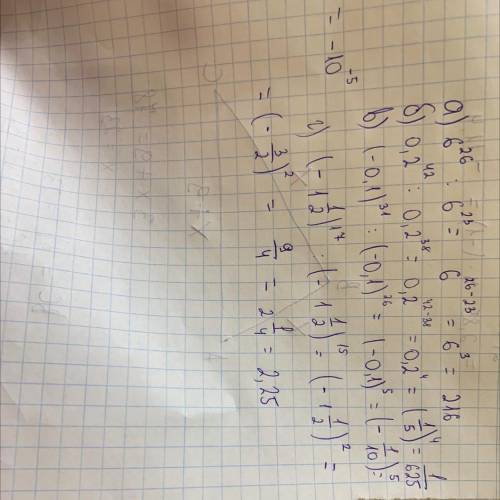 а) 6²⁶ : 6²³ = 6²⁶⁻²³ = 6³ = 216
б) 0,2⁴² : 0,2³⁸ = 0,2⁴²⁻³⁸ = 0,2⁴ = (1/5)⁴ = 1/625
в) (-0,1)³¹ : (-0,1)²⁶ = (-0,1)⁵ = (-1/10)⁵ =
= -10⁻⁵
г) (-1 1/2)¹⁷ : (-1 1/2)¹⁵ = (-1 1/2)² =
= (-3/2)² = 9/4 = 2 1/4 = 2,25